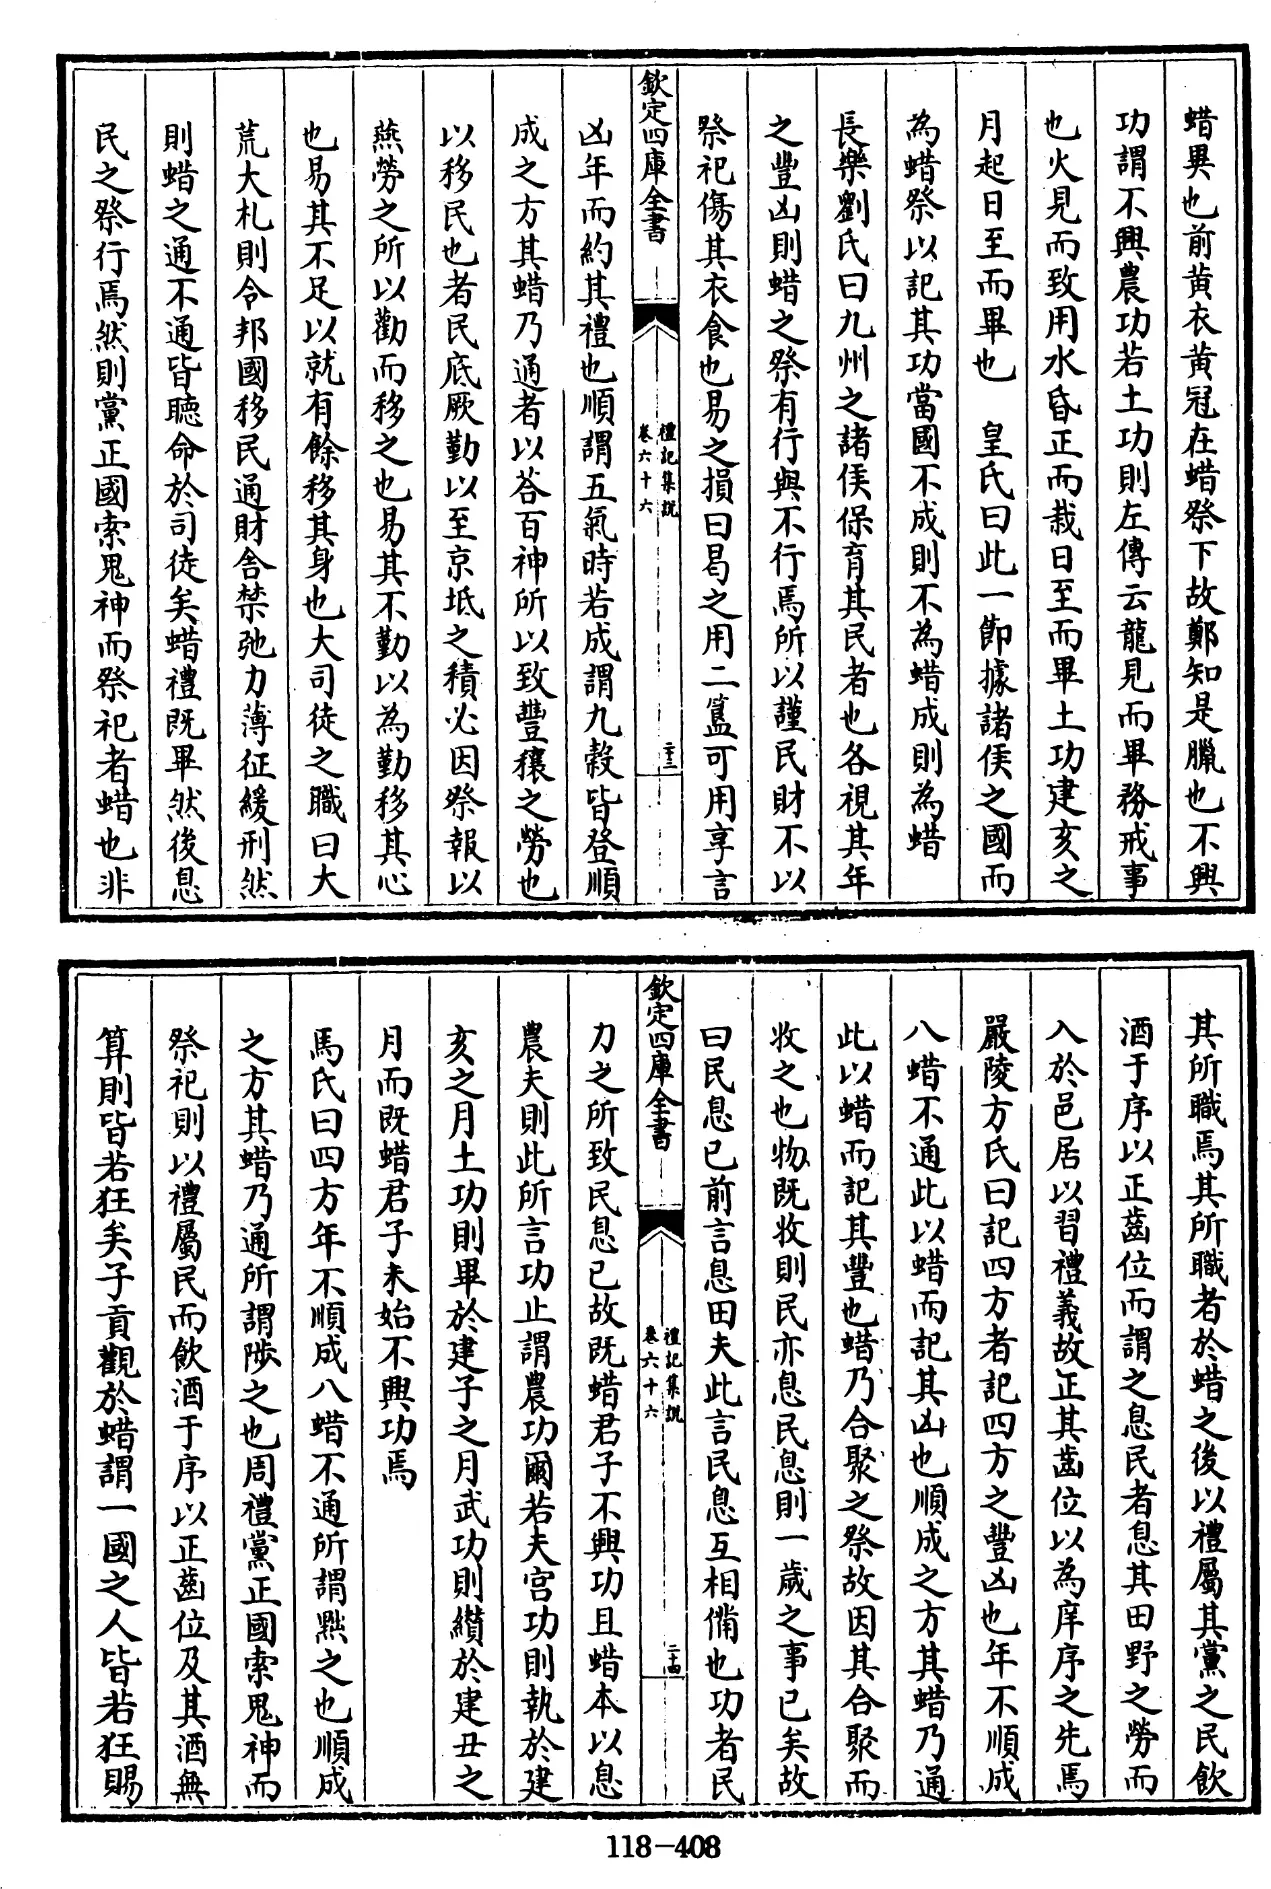 蜡異也前黄衣黄冠在蜡祭下故鄭知是臘也不興
功謂不興農功若土功則左傳云龍見而畢務戒事
也火見而致用水昏正而栽日至而畢土功建亥之
月起日至而畢也　皇氏曰此一節據諸侯之國而
為蜡祭以記其功當國不成則不為蜡成則為蜡
長樂劉氏曰九州之諸侯保育其民者也各視其年
之豐凶則蜡之祭有行與不行焉所以謹民財不以
祭祀傷其衣食也易之損曰曷之用二簋可用享言
欽定四庫全書
禮記集說
卷六十六
二十三
凶年而約其禮也順謂五氣時若成謂九穀皆登順
成之方其蜡乃通者以荅百神所以致豐穰之勞也
以移民也者民底厥勤以至京坻之積必因祭報以
燕勞之所以勸而移之也易其不勤以為勤移其心
也易其不足以就有餘移其身也大司徒之職曰大
荒大札則令邦國移民通財舎禁弛力薄征緩刑然
則蜡之通不通皆聴命於司徒矣蜡禮既畢然後息
民之祭行焉然則黨正國索鬼神而祭祀者蜡也非
其所職焉其所職者於蜡之後以禮屬其黨之民飲
酒于序以正齒位而謂之息民者息其田野之勞而
入於邑居以習禮義故正其齒位以為庠序之先焉
嚴陵方氏曰記四方者記四方之豐凶也年不順成
八蜡不通此以蜡而記其凶也順成之方其蜡乃通
此以蜡而記其豐也蜡乃合聚之祭故因其合聚而
收之也物既收則民亦息民息則一歲之事已矣故
曰民息已前言息田夫此言民息互相備也功者民
欽定四庫全書
禮記集說
卷六十六
二十四
力之所致民息已故既蜡君子不興功且蜡本以息
農夫則此所言功止謂農功爾若夫宫功則執於建
亥之月土功則畢於建子之月武功則纘於建丑之
月而既蜡君子未始不興功焉
馬氏曰四方年不順成八蜡不通所謂黜之也順成
之方其蜡乃通所謂陟之也周禮黨正國索鬼神而
祭祀則以禮屬民而飲酒于序以正齒位及其酒無
算則皆若狂矣子貢觀於蜡謂一國之人皆若狂賜
118-408